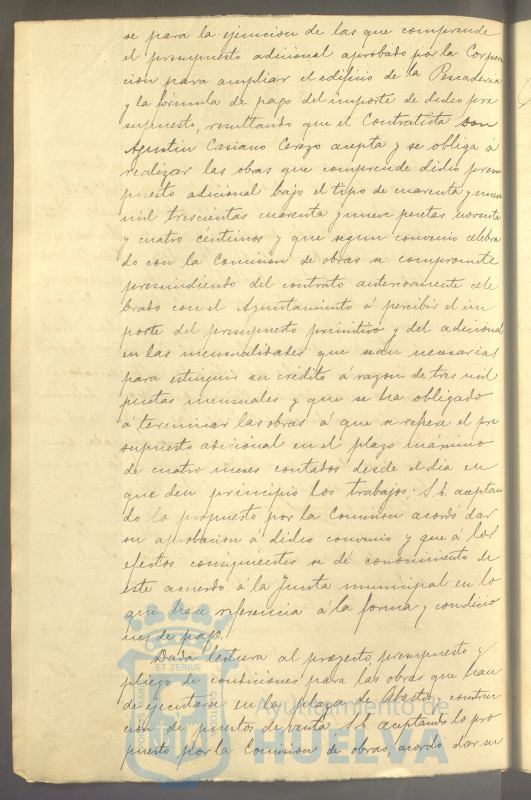 se para la ejecucion de las que comprende
el presupuesto adicional aprobado por la Corpora
cion para ampliar el edificio de la Pescaderia
y la fórmula de pago del importe de dicho pre
supuesto, resultando que el Contratista Don
Agustin Casiano Cerezo acepta y se obliga á
realizar las obras que comprende dicho presu
puesto adicional bajo el tipo de cuarenta y nueve
mil trescientas cuarenta y nueve pesetas noventa
y cuatro céntimos y que segun convenio celebra
do con la Comision de obras se compromete
prescindiendo del contrato anteriormente cele
brado con el Ayuntamiento á percibir el im
porte del presupuesto primitivo y del adicional
en las mensualidades que sean necesarias
para estinguir su crédito á razon de tres mil
pesetas mensuales y que se ha obligado
á terminar las obras á que se refiere el pre
supuesto adicional en el plazo máximo
de cuatro meses contados desde el dia en
que den principio los trabajos; S.E. aceptan
do lo propuesto por la Comision acordó dar
su aprobacion á dicho convenio y que á los
efectos consiguientes se dé conocimiento de
este acuerdo á la Junta municipal en lo
que hace referencia á la forma y condicio
nes de pago.
Dada lectura al proyecto, presupuesto y
pliego de condiciones para las obras que han
de ejecutarse en la plaza de Abastos, construc
cion de puestos de venta S.E. aceptando lo pro
puesto por la Comision de obras, acordó dar su
ET TERRÆ
Ayuntamiento de
HUELVA